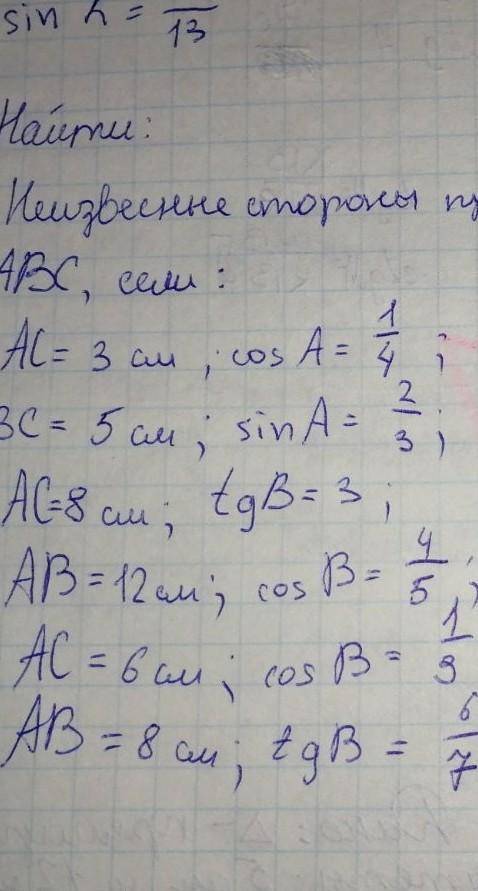 sin 𝛼 = /13
Найти:
Неизвесные стороны
ABC, если:
AC = 3 см, cos A = 1/4;
BC = 5 см; sin A = 2/3;
AC = 8 см; tg B = 3;
AB = 12 см; cos B = 4/5;
AC = 6 см; cos B = 1/3
AB = 8 см; tg B = 6/7